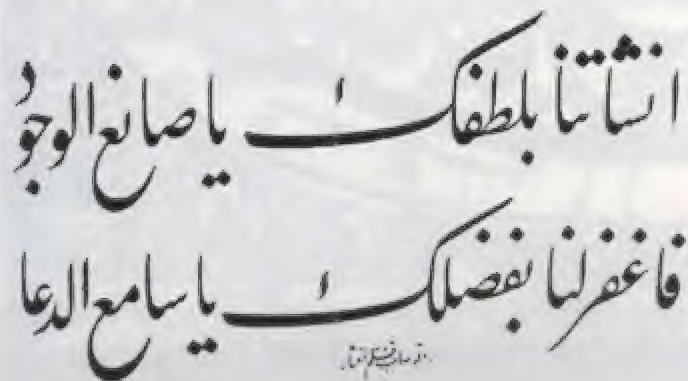 انشاتنا بلطفك یا صانع الوجود
فاغفر لنا بفضلك یا سامع الدعا